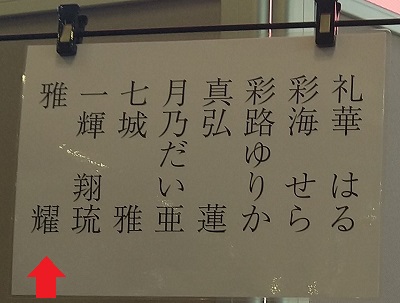 礼華 はる
彩海 せら
彩路ゆりか
真弘 蓮
月乃だい亜
七城 雅
一輝 翔琉
雅 耀